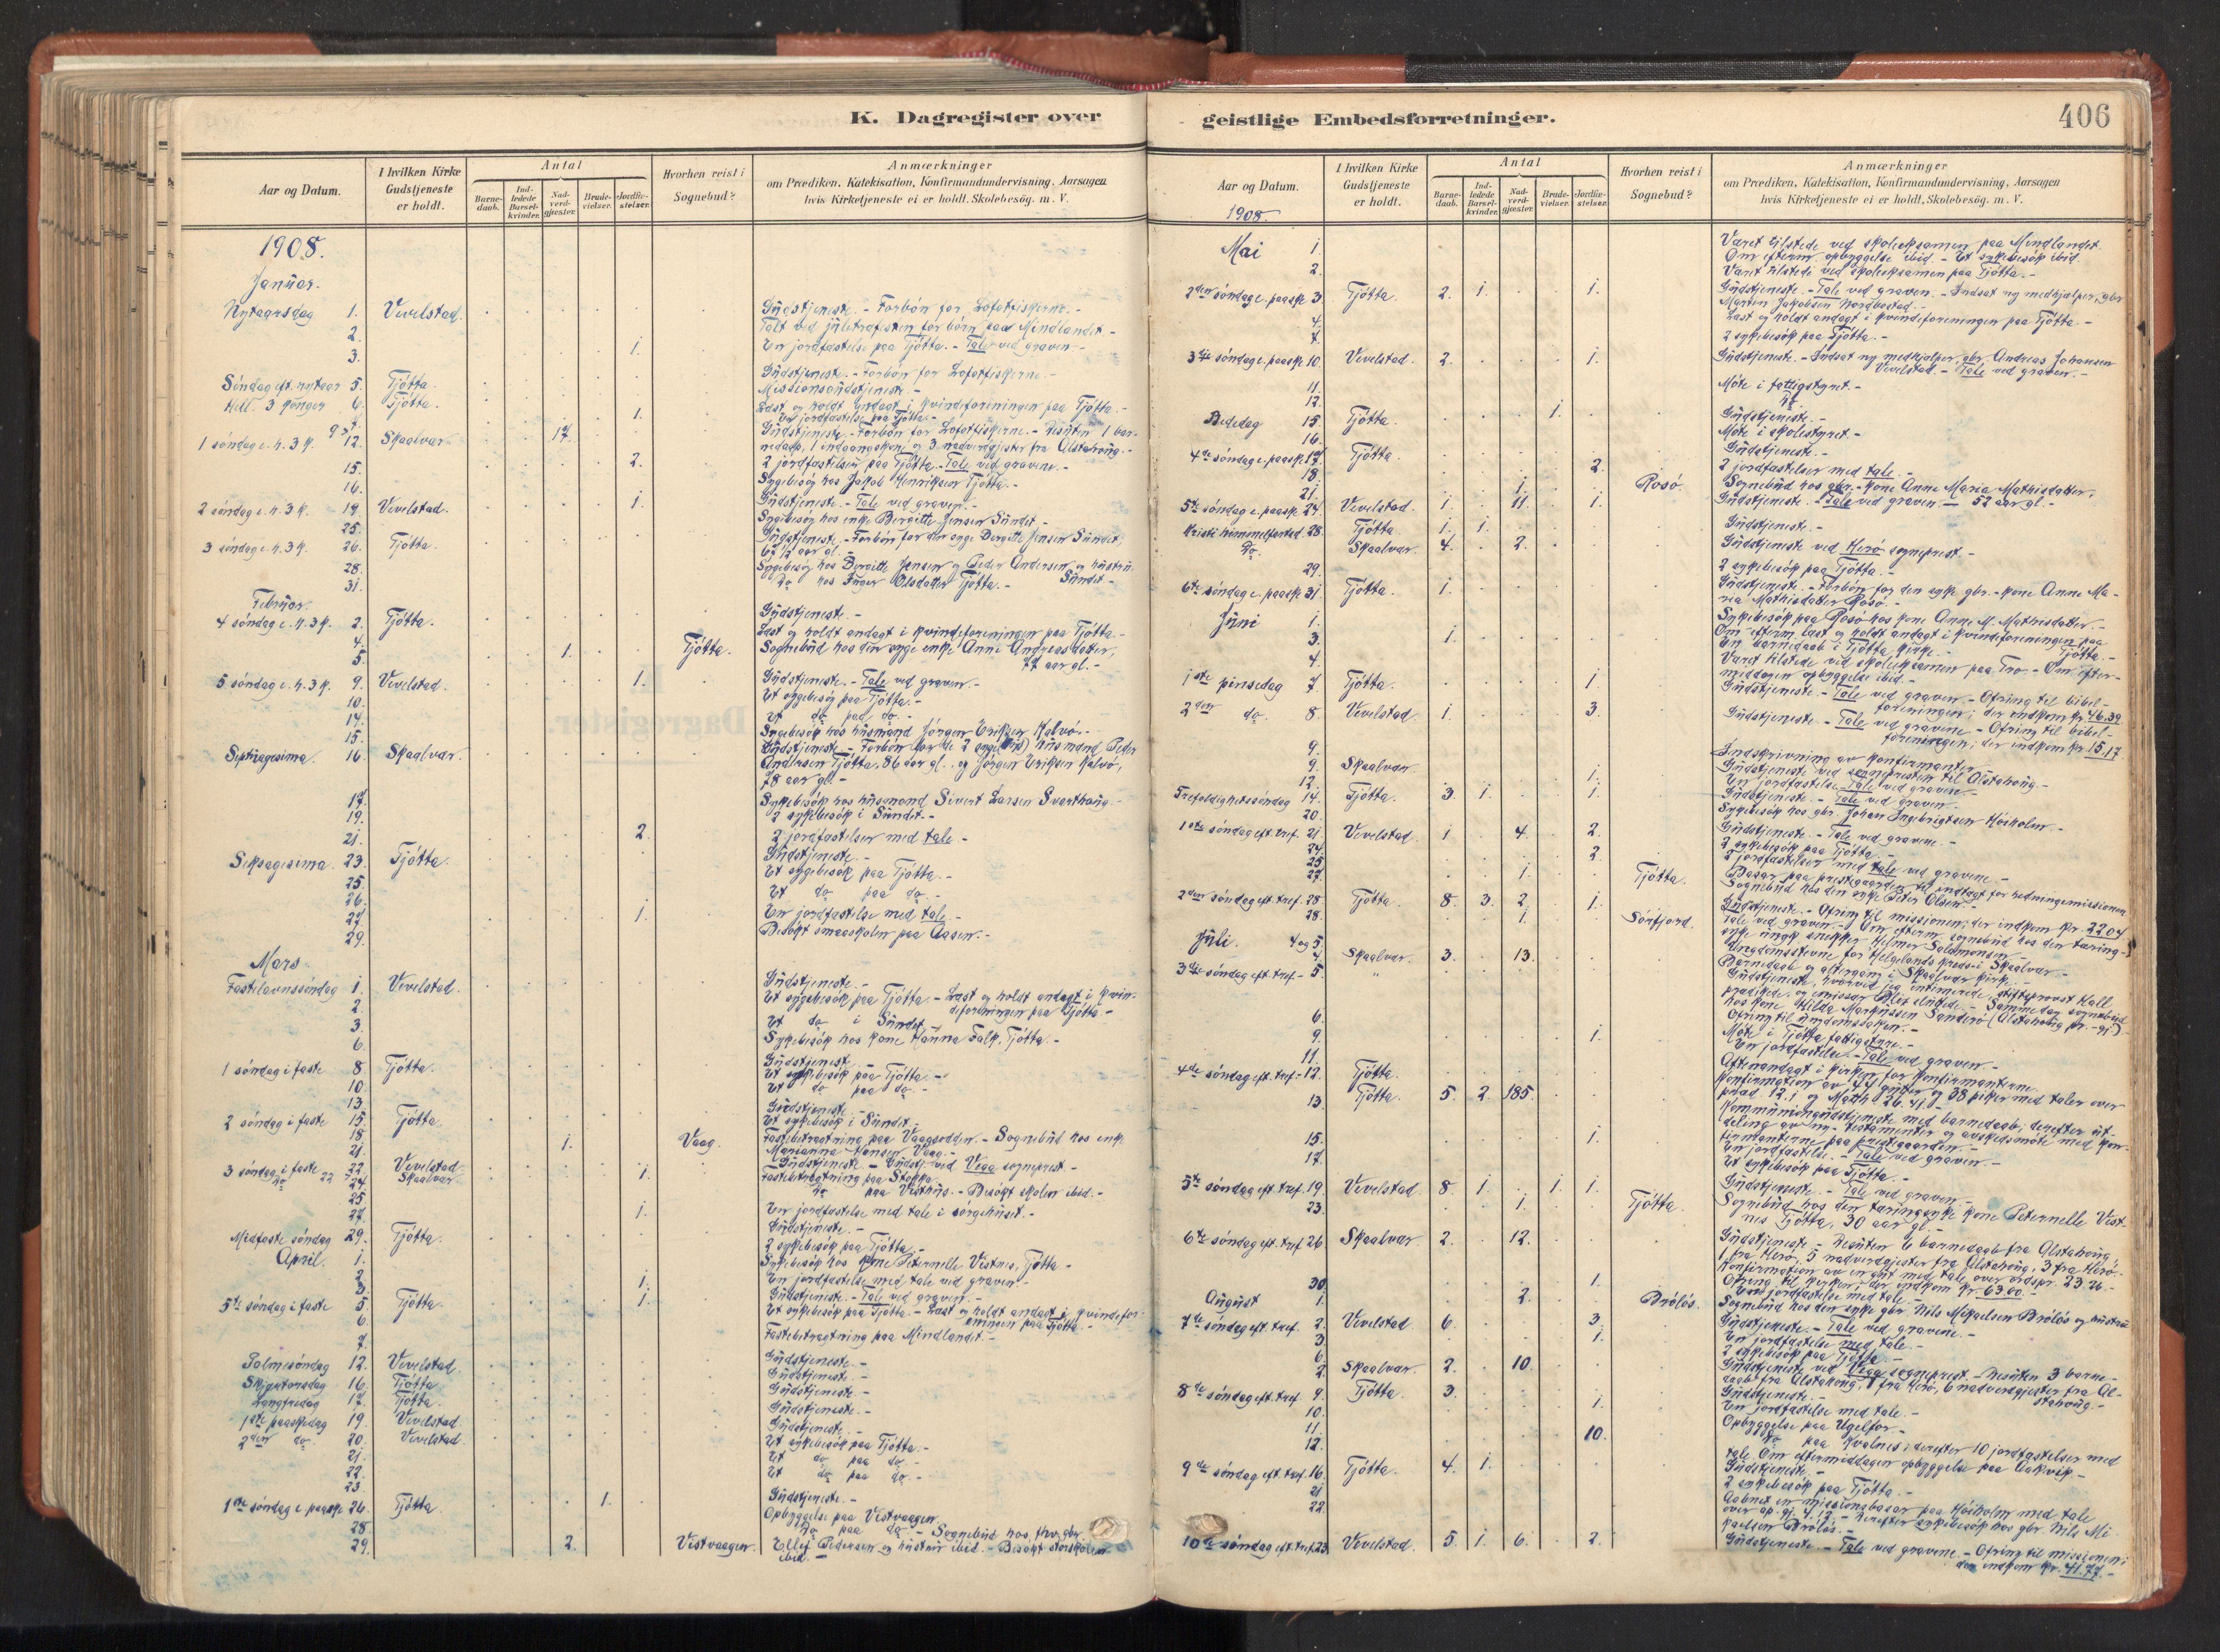 K. Dagregister over
Aar og Datum.
I hvilken Kirke Gudstjeneste er holdt.
Antal
Barne-daab.
Ind-ledede Barsel-kvinder.
Nad-verd-gjæster.
Brude-vielser.
Jordfæ-stelser.
Hvorhen reist i Sognebud?
Anmærkninger
om Prædiken, Katekisation, Konfirmandundervisning, Aarsagen
hvis Kirketjeneste ei er holdt, Skolebesög. m. V.
1908.
Januar.
Nytaarsdag 1. Vevelstad. Gudstjeneste. - Forbön for Lofotfiskerne. -
2. Talt ved juletræfesten for börn paa Mindlandet -
3. 1. En jordfæstelse paa Tjötta. - Tale ved graven -
Söndag eft. nytaar 5. Tjötta. Gudstjeneste. - Forbön for Lofotfiskerne -
Hell. 3 konger 6. Tjötta. Missionsgudstjeneste. -
Læst og holdt andagt i kvindeforeningen paa Tjötta. -
1. En jordfæstelse paa Tjötta. -
1 söndag e. h. 3 k. 12. Skaalvær 17. Gudstjeneste. - Forbön for Lofotfiskerne. - Desuten 1 bar-
nedaab, 1 indgangskone og 3 nadverdgjester fra Alstahoug. -
15. 2. 2 jordfæstelser paa Tjötta. - Tale ved gravene. -
16. Sygebesög hos Jakob Henriksen Tjötta. -
2 söndag e. h. 3 k. 19. Vevelstad. 1. Gudstjeneste. - Tale ved graven. -
25. Sygebesög hos enke Bergitte Jensen Sundet. -
3 söndag e. h. 3 k. 26. Tjötta. Gudstjeneste. - Forbön for den syge Bergitte Jensen Sundet,
aar gl. -
28. Sygebesög hos Bergitte Jensen og Peder Andersen og hustru
31. Do hos Inger Olsdatter Tjötta. - Sundet. -
Februar.
4 söndag e. h. 3 k. 2. Tjötta. Gudstjeneste. -
4. Læst og holdt andagt i kvindeforeningen paa Tjötta. -
5. 1. Tjötta. Sognebud hos den syge enke Anne Andreasdatter,
77 aar gl. -
5 söndag e. h. 3 k. 9. Vevelstad. 1. Gudstjeneste. - Tale ved graven. -
10. Et sygebesög paa Tjötta. -
14. Et do paa do. -
15. Sygebesök hos husmand Jörgen Eriksen Kalvö. -
Septuagesima. 16. Skaalvær. Gudstjeneste. - Forbön for de 2 syge husmand Peder
Andersen Tjötta, 86 aar gl., og Jörgen Eriksen Kalvö,
78 aar gl. -
17. Sykebesök hos husmand Sivert Larsen Svarthaug. -
19. 2 sykebesök i Sundet. -
21. 2. 2 jordfæstelser med tale -
Seksagesima. 23. Tjötta. Gudstjeneste. -
25. Et sygebesök paa Tjötta. -
26. Et do paa do. -
27. 1. En jordfæstelse med tale. -
29. Besökt smaaskolen paa Aasen. -
Mars
Fastelavnssöndag 1. Vevelstad. Gudstjeneste. -
2. Et sygebesök paa Tjötta. - Læst og holdt andagt i kvin-
deforeningen paa Tjötta -
3. Et do i Sundet. -
6. Sykebesök hos kone Hanna Falk, Tjötta. -
1 söndag i faste 8. Tjötta. Gudstjeneste. -
10. Et sykebesök paa Tjötta -
13. Et do paa do -
2 söndag i faste 15. Tjötta. Gudstjeneste. -
18. Et sykebesök i Sundet. -
21. 1. Vaag. Fastebetragtning paa Vaagsodden. - Sognebud hos enke
Marianna Hansen Vaag. -
3 söndag i faste 22. Vevelstad. Gudstjeneste. - Gudstj. ved Vega sogneprest -
do 22 Skaalvær.
24. 1. Fastebetragtning paa Stokka.
25. Do paa Visthus. - Besökt skolen ibid. -
27. 1. En jordfæstelse med tale i sörgehuset. -
Midfaste söndag 29. Tjötta. Gudstjeneste. -
April. 1. 2 sykebesök paa Tjötta. -
2. Sykebesök hos kone Peternelle Vistnes, Tjötta -
3. 1. En jordfæstelse med tale ved graven -
5te söndag i faste 5. Tjötta. 1. Gudstjeneste. - Tale ved graven. -
6. Et sykebesök paa Tjötta. - Læst og holdt andagt i kvindefor-
eningen paa Tjötta. -
7. Fastebetragtning paa Mindlandet. -
Palmesöndag 12. Vevelstad. Gudstjeneste. -
Skjærtorsdag 16. Tjötta Gudstjeneste. -
Langfredag 17. Tjötta. Gudstjeneste -
1ste paaskedag 19. Vevelstad Gudstjeneste. -
2den do. 20. Vevelstad Gudstjeneste. -
21. Et sykebesök paa Tjötta. -
22. Et do paa do. -
23. Et do paa do. -
1ste söndag e. paaske 26. Tjötta. 1. Gudstjeneste. -
28. Opbyggelse paa Vistvaagen.
29. 2. Vistvaagen. Do paa do - Sognebud hos fhv. gbr.
Ellef Pedersen og hustru ibid. - Besökt storskolen
ibid. -
geistlige Embedsforretninger.
406
Aar og Datum.
I hvilken Kirke Gudstjeneste er holdt.
Antal
Barne-daab.
Ind-ledede Barsel-kvinder.
Nad-verd-gjæster.
Brude-vielser.
Jordfæ-stelser.
Hvorhen reist i Sognebud?
Anmærkninger
om Prædiken, Katekisation, Konfirmandundervisning, Aarsagen
hvis Kirketjeneste ei er holdt, Skolebesög. m. V.
1908.
Mai 1. Været tilstede ved skoleeksamen paa Mindlandet.
Om efterm. opbyggelse ibid. - Et sykebesök ibid.
2. Været tilstede ved skoleeksamen paa Tjötta. -
2den söndag e. paaske 3. Tjötta. 2. 1. 1. Gudstjeneste. - Tale ved graven. - Indsat ny medhjælper, gbr.
Martin Jakobsen Nordbostad. -
4. Læst og holdt andagt i kvindeforeningen paa Tjötta. -
7. 2 sykebesök paa Tjötta. -
3dje söndag e. paaske 10. Vevelstad. 2. 1. Gudstjeneste. - Indsat ny medhjælper, gbr. Andreas Johansen
Vevelstad. - Tale ved graven. -
11. Möte i fattigstyret. -
12. 1.
Bededag 15. Tjötta. Gudstjeneste. -
16. Möte i skolestyret -
4de söndag e. paaske 17. Tjötta. Gudstjeneste. -
18. 2. 2 jordfæstelser med tale. -
21. 1. Rosö. Sognebud hos gbr.-kone Anne Maria Mathisdatter,
52 aar gl. -
5te söndag e. paaske 24. Vevelstad. 1. 11. 1. Gudstjeneste. - Tale ved graven. -
Kristi himmelfartsd. 28. Tjötta. 1. 1. Gudstjeneste. -
Do. Skaalvær. 4. 2. Gudstjeneste ved Herö sogneprest. -
29. 2 sykebesök paa Tjötta. -
6te söndag e. paaske 31. Tjötta. 1. Gudstjeneste. - Forbön for den syke gbr.-kone Anne Ma-
ria Mathisdatter Rosö. -
Juni 1. Sykebesök paa Rosö hos kone Anne M. Mathisdatter. -
Om efterm. læst og holdt andagt i kvindeforeningen paa
Tjötta. -
3. 1. En barnedaab i Tjötta kirke. -
4. Været tilstede ved skoleeksamen paa Tro. - Om efter-
middagen opbyggelse ibid. -
1ste pinsedag 7. Tjötta. 1. Gudstjeneste. - Tale ved graven. - Ofring til bibel-
foreningen; der indkom kr. 46.39
2den do. 8. Vevelstad. 1. 3. Gudstjeneste. - Tale ved gravene - Ofring til bibel-
foreningen; der indkom kr. 15.17
9. Indskrivning av konfirmanter. -
9. Skaalvær. Gudstjeneste ved sognepresten til Alstahoug. -
12. 1. En jordfæstelse. - Tale ved graven. -
Trefoldighetssöndag 14. Tjötta. 3. 1. 1. Gudstjeneste. - Tale ved graven. -
20. Sykebesök hos gbr. Johan Ingebrigtsen Höiholm. -
1ste söndag eft. tref. 21. Vevelstad. 1. 4. 2. Gudstjeneste. - Tale ved gravene. -
24. 2 sykebesök paa Tjötta. -
25. 2. 2 jordfæstelser med tale ved gravene. -
Basar paa prestegaarden til indtægt for hedningemissionen
27. 1. Tjötta. Sognebud hos den syke Peter Olsen. -
2den söndag eft. tref. 28. Tjötta. 8. 3. 2. 1. Gudstjeneste. - Ofring til missionen; der indkom kr. 22.04
28. 1. Sörfjord. Tale ved graven. - Om efterm. sognebud hos den tæring-
syke ungk. snekker Helmer Salamonsen. -
Juli. 4 og 5. Ungdomsstevne for Helgelands kreds i Skaalvær. -
4. Skaalvær. 3. 13. Barnedaab og altergang i Skaalvær kirke. -
3dje söndag eft. tref. - 5. " Gudstjeneste, hvorved jeg intimerede, stiftsprovst Hall
prædikede, og emissær Blix sluttede. - Samme dag sognebud
hos kone Hilda Markussen Sanderö (Alstahoug pr.-gj).
Ofring til ungdomssaken. -
6. Möte i Tjötta fattigstyre. -
9. 1. En jordfæstelse. - Tale ved graven. -
11. Aftenandagt i kirken for konfirmanterne.
4de söndag eft. tref. - 12. Tjötta. Konfirmation av 44 gutter og 38 piker med taler over
præd. 12.1 og Matth. 26.41. -
13. Tjötta. 5. 2. 185. Kommuniongudstjeneste med barnedaab; derefter ut-
deling av ny-testamenter og avskedsmöte med kon-
firmanterne paa prestegaarden. -
15. 1. En jordfæstelse. - Tale ved graven. -
17. Et sykebesök paa Tjötta. -
5te söndag eft. tref. 19. Vevelstad. 8. 1. 1. 1. Gudstjeneste. - Tale ved graven -
23. 1. Tjötta. Sognebud hos den tæringssyke kone Peternelle Vist-
nes Tjötta, 30 aar gl. -
6te söndag eft. tref. 26. Skaalvær. 2. 12. Gudstjeneste - Desuten 6 barnedaab fra Alstahoug,
1 fra Herö, 5 nadverdgjester fra Alstahoug, 3 fra Herö. -
Konfirmation av en gut med tale over ordspr. 23.26. -
Ofring til kirken; der indkom kr. 63.00. -
30. 1. En jordfæstelse med tale. -
August 1. 2. Brölös. Sognebud hos den syke gbr. Nils Mikaelsen Brölös og hustru
7de söndag eft. tref. 2. Vevelstad. 6. 3. Gudstjeneste. - Tale ved gravene. -
3. 1. En jordfæstelse med tale. -
6. 2 sykebesök paa Tjötta. -
2. Skaalvær. 2. 10. Gudstjeneste ved Vega sogneprest. - Desuten 3 barne-
daab fra Alstahoug, 1 fra Herö, 6 nadverdgjester fra Al-
stahoug. -
8de söndag eft. tref. 9. Tjötta. 3. Gudstjeneste. -
10. 1. En jordfæstelse med tale. -
11. Opbyggelse paa Ugelfor. -
12. 10. Do paa Kvalnes; derefter 10 jordfæstelser med
tale. Om eftermiddagen opbyggelse paa Aakvik. -
9de söndag eft. tref. 16. Tjötta. 4. 1. Gudstjeneste. -
21 2 sykebesök paa Tjötta. -
22. Aabnet en missionsbasar paa Höiholm med tale
over ap. gj. 4.12. - Derefter sykebesök hos gbr. Nils Mi-
kaelsen Brölös. -
10de söndag eft. tref. 23. Vevelstad. 5. 1. 6. 2. Gudstjeneste. - Tale ved gravene. - Ofring til missionen;
der indkom kr. 41.77. -